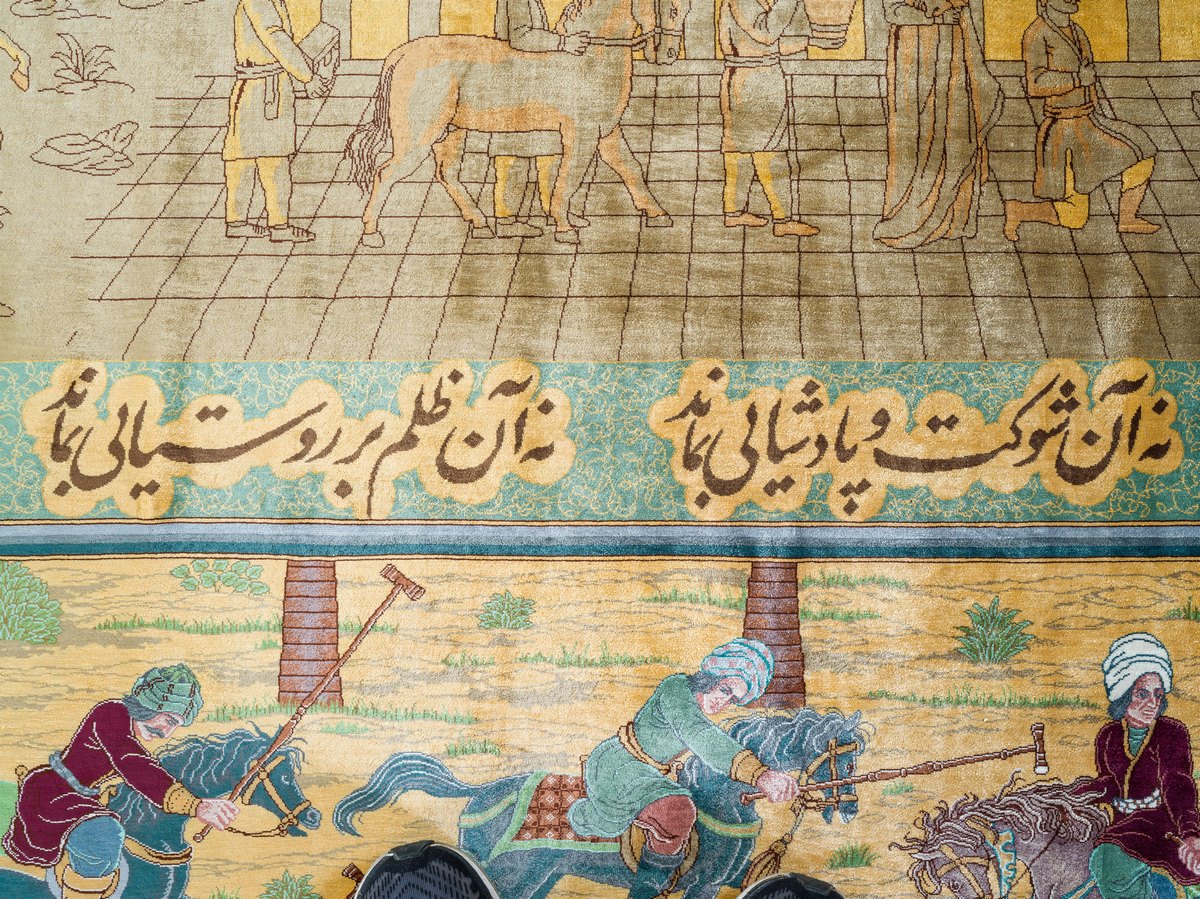 نه آن شوکت و پادشایی بماند
نه آن ظلم بر روستیایی بماند